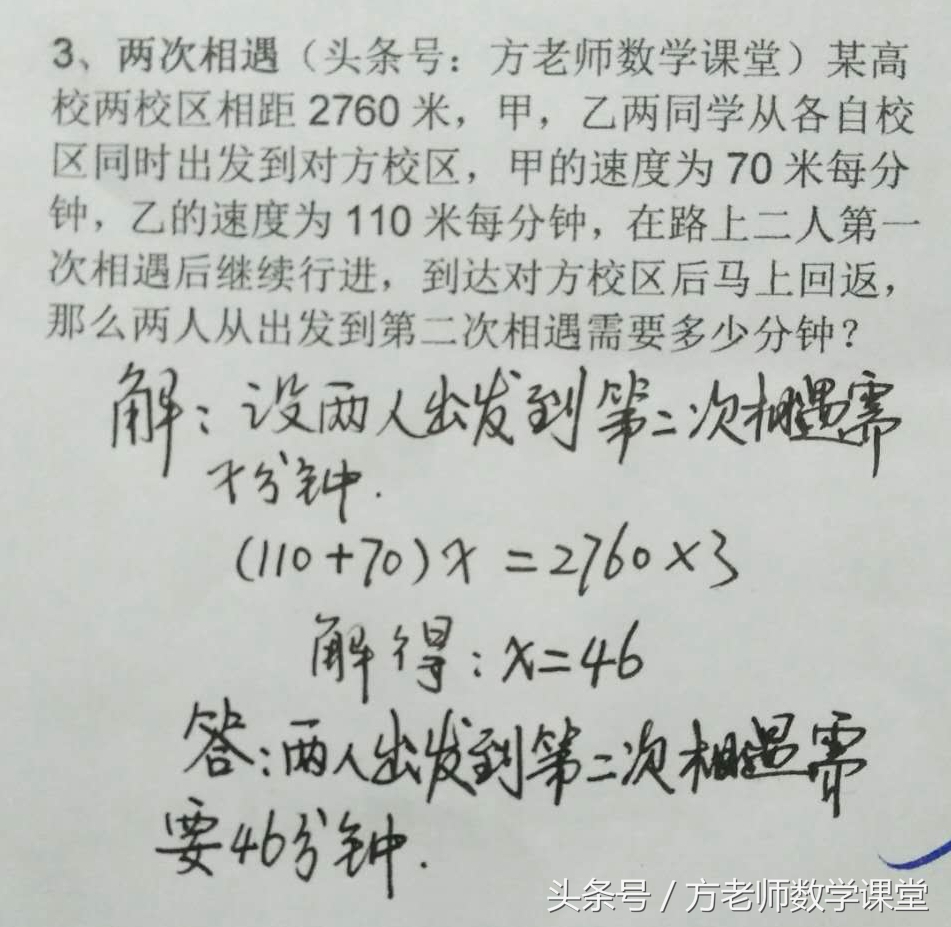 3、两次相遇（头条号：方老师数学课堂）某高
校两校区相距 2760 米，甲，乙两同学从各自校
区同时出发到对方校区，甲的速度为 70 米每分
钟，乙的速度为 110 米每分钟，在路上二人第一
次相遇后继续行进，到达对方校区后马上回返，
那么两人从出发到第二次相遇需要多少分钟？
解：设两人出发到第二次相遇需
x分钟.
(110+70)x=2760×3
解得：x=46
答：两人出发到第二次相遇需
要46分钟.
头条号 / 方老师数学课堂